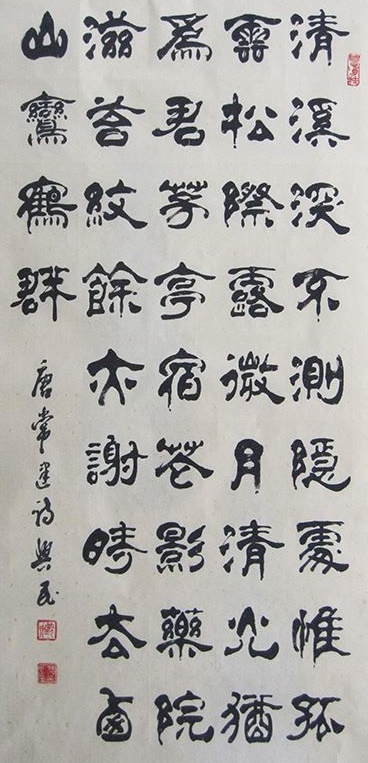 清溪深不測隱處惟孤
雲松際露微月清光猶
爲君茅亭宿花影藥院
滋苔紋餘亦謝時去西
山鸞鶴群
唐常建詩興民